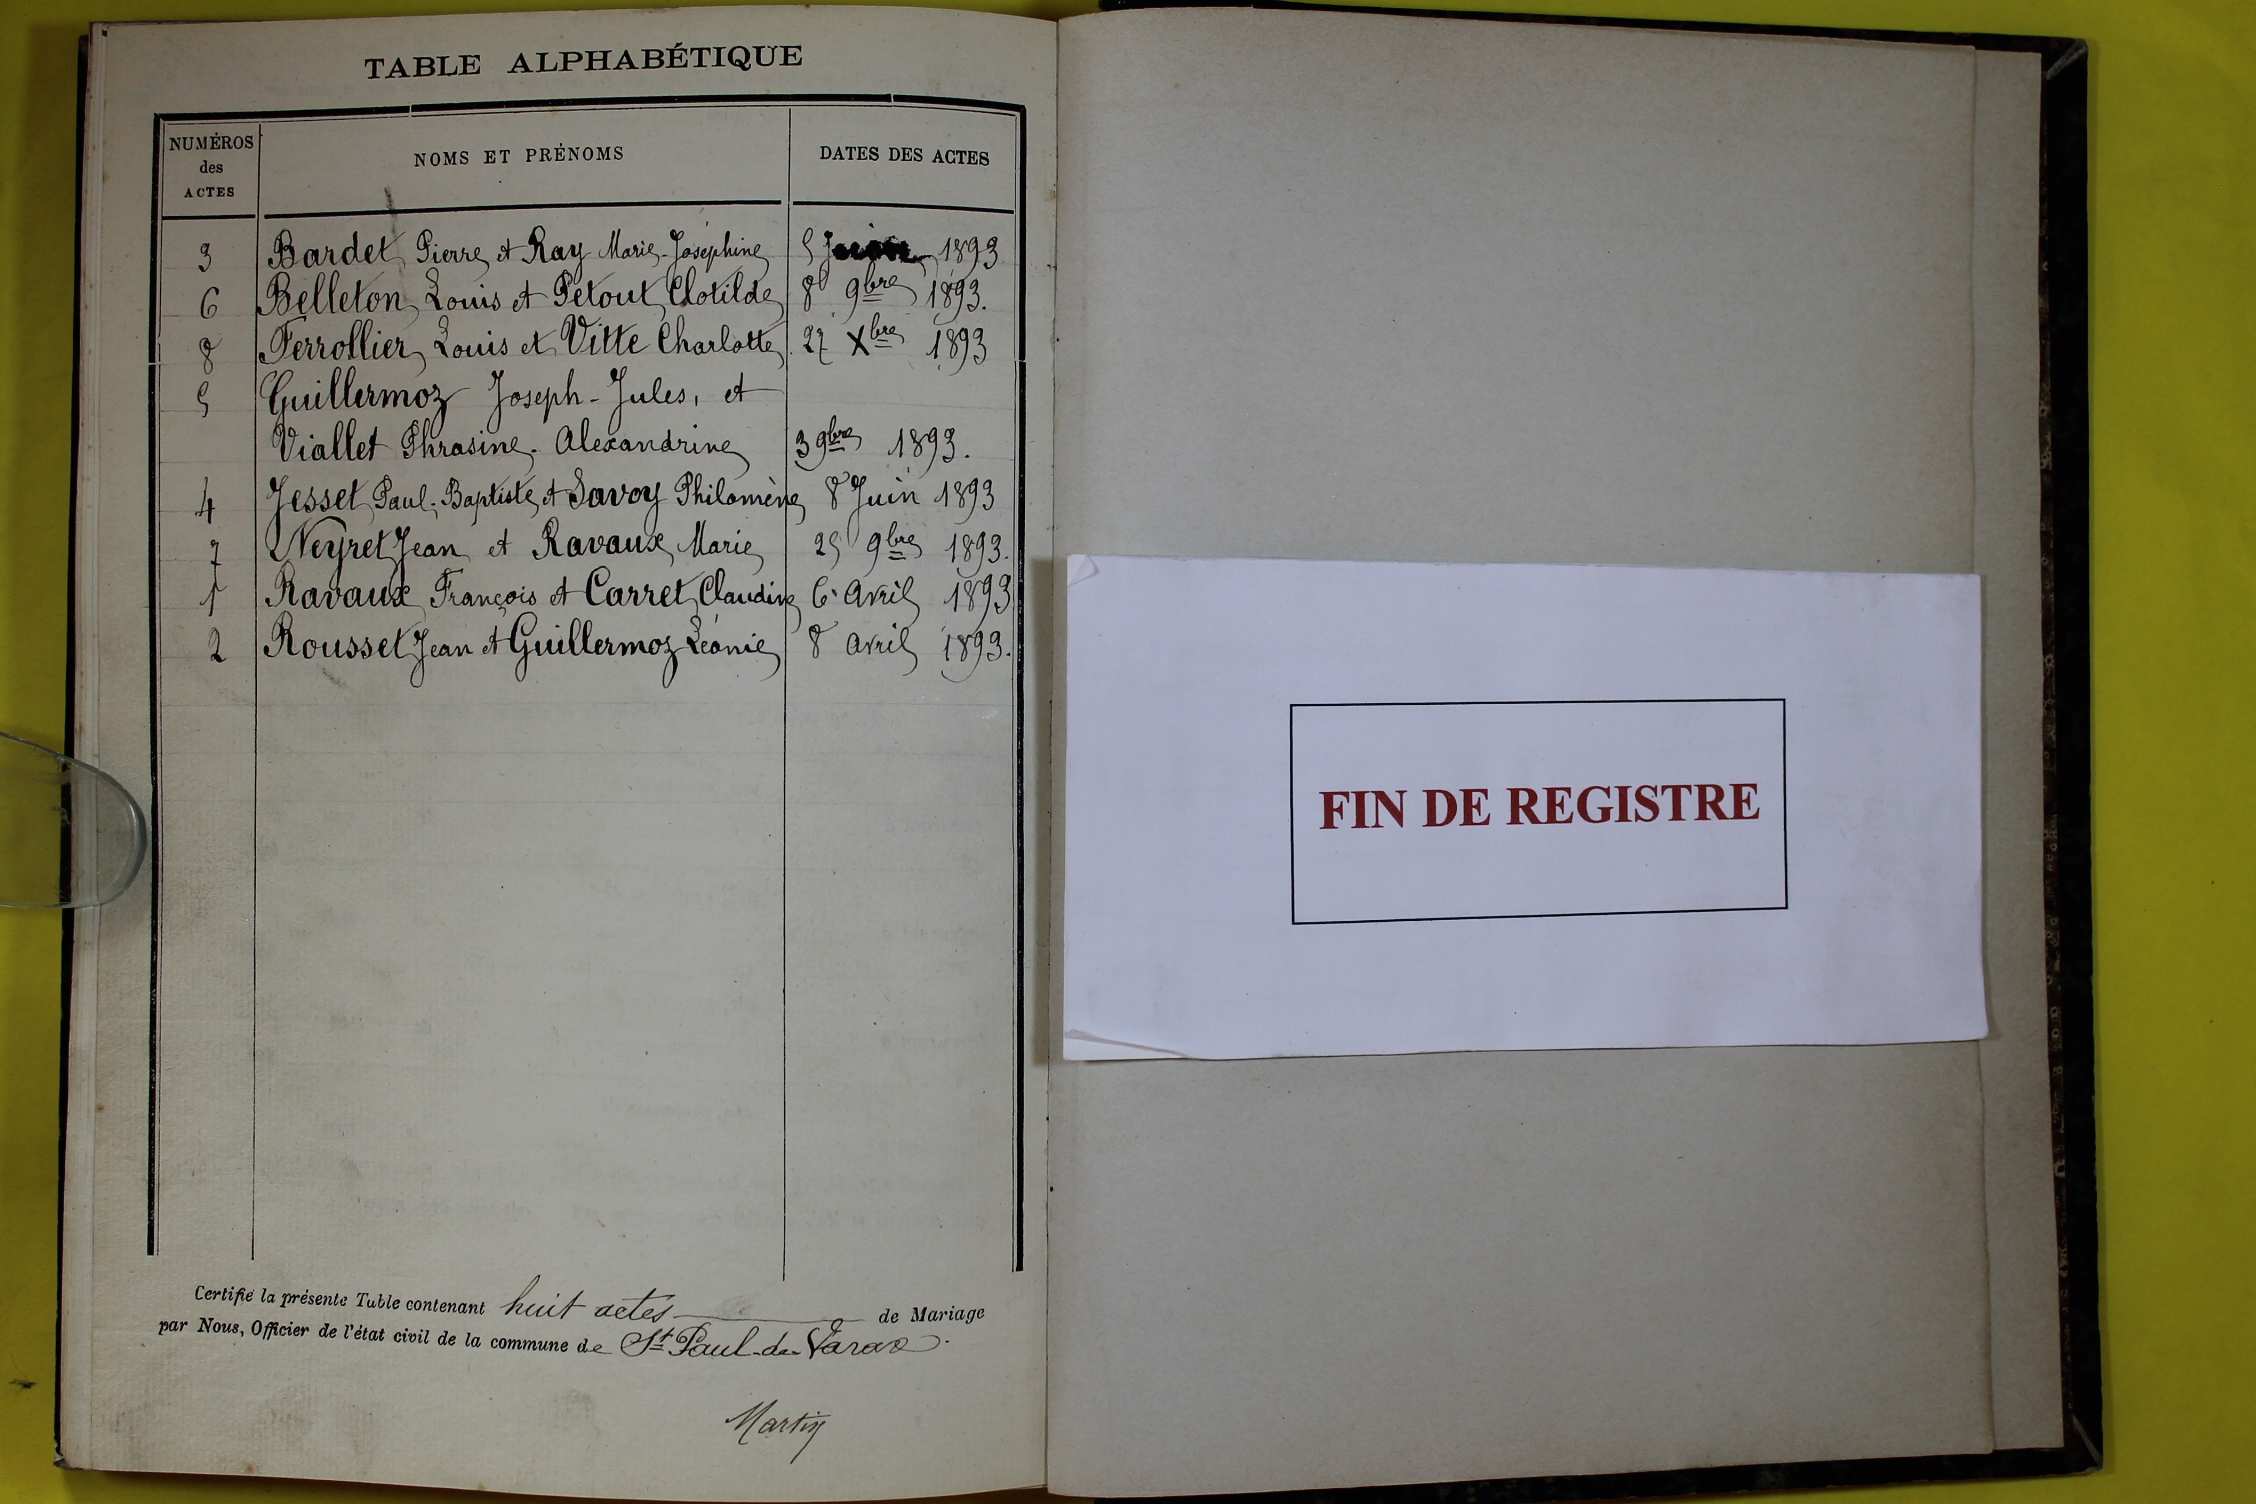 TABLE ALPHABÉTIQUE
NUMÉROS des ACTES
NOMS ET PRÉNOMS
DATES DES ACTES
3 Bardet Pierre et Ray Marie-Joséphine 5 1893
6 Belleton Louis et Petout Clotilde 8 9bre 1893.
8 Ferrollier Louis et Vitte Charlotte 27 Xbre 1893
5 Guillermoz Joseph-Jules, et
Viallet Phrasine-Alexandrine 3 9bre 1893.
4 Jesset Paul-Baptiste et Savoy Philomène 8 Juin 1893
7 Neyret Jean et Ravaux Marie 25 9bre 1893.
1 Ravaux François et Carret Claudine 6 Avril 1893
2 Rousset Jean et Guillermoz Léonie 8 avril 1893.
Certifié la présente Table contenant huit actes de Mariage
par Nous, Officier de l'état civil de la commune de St Paul-de-Varax.
Martin
FIN DE REGISTRE